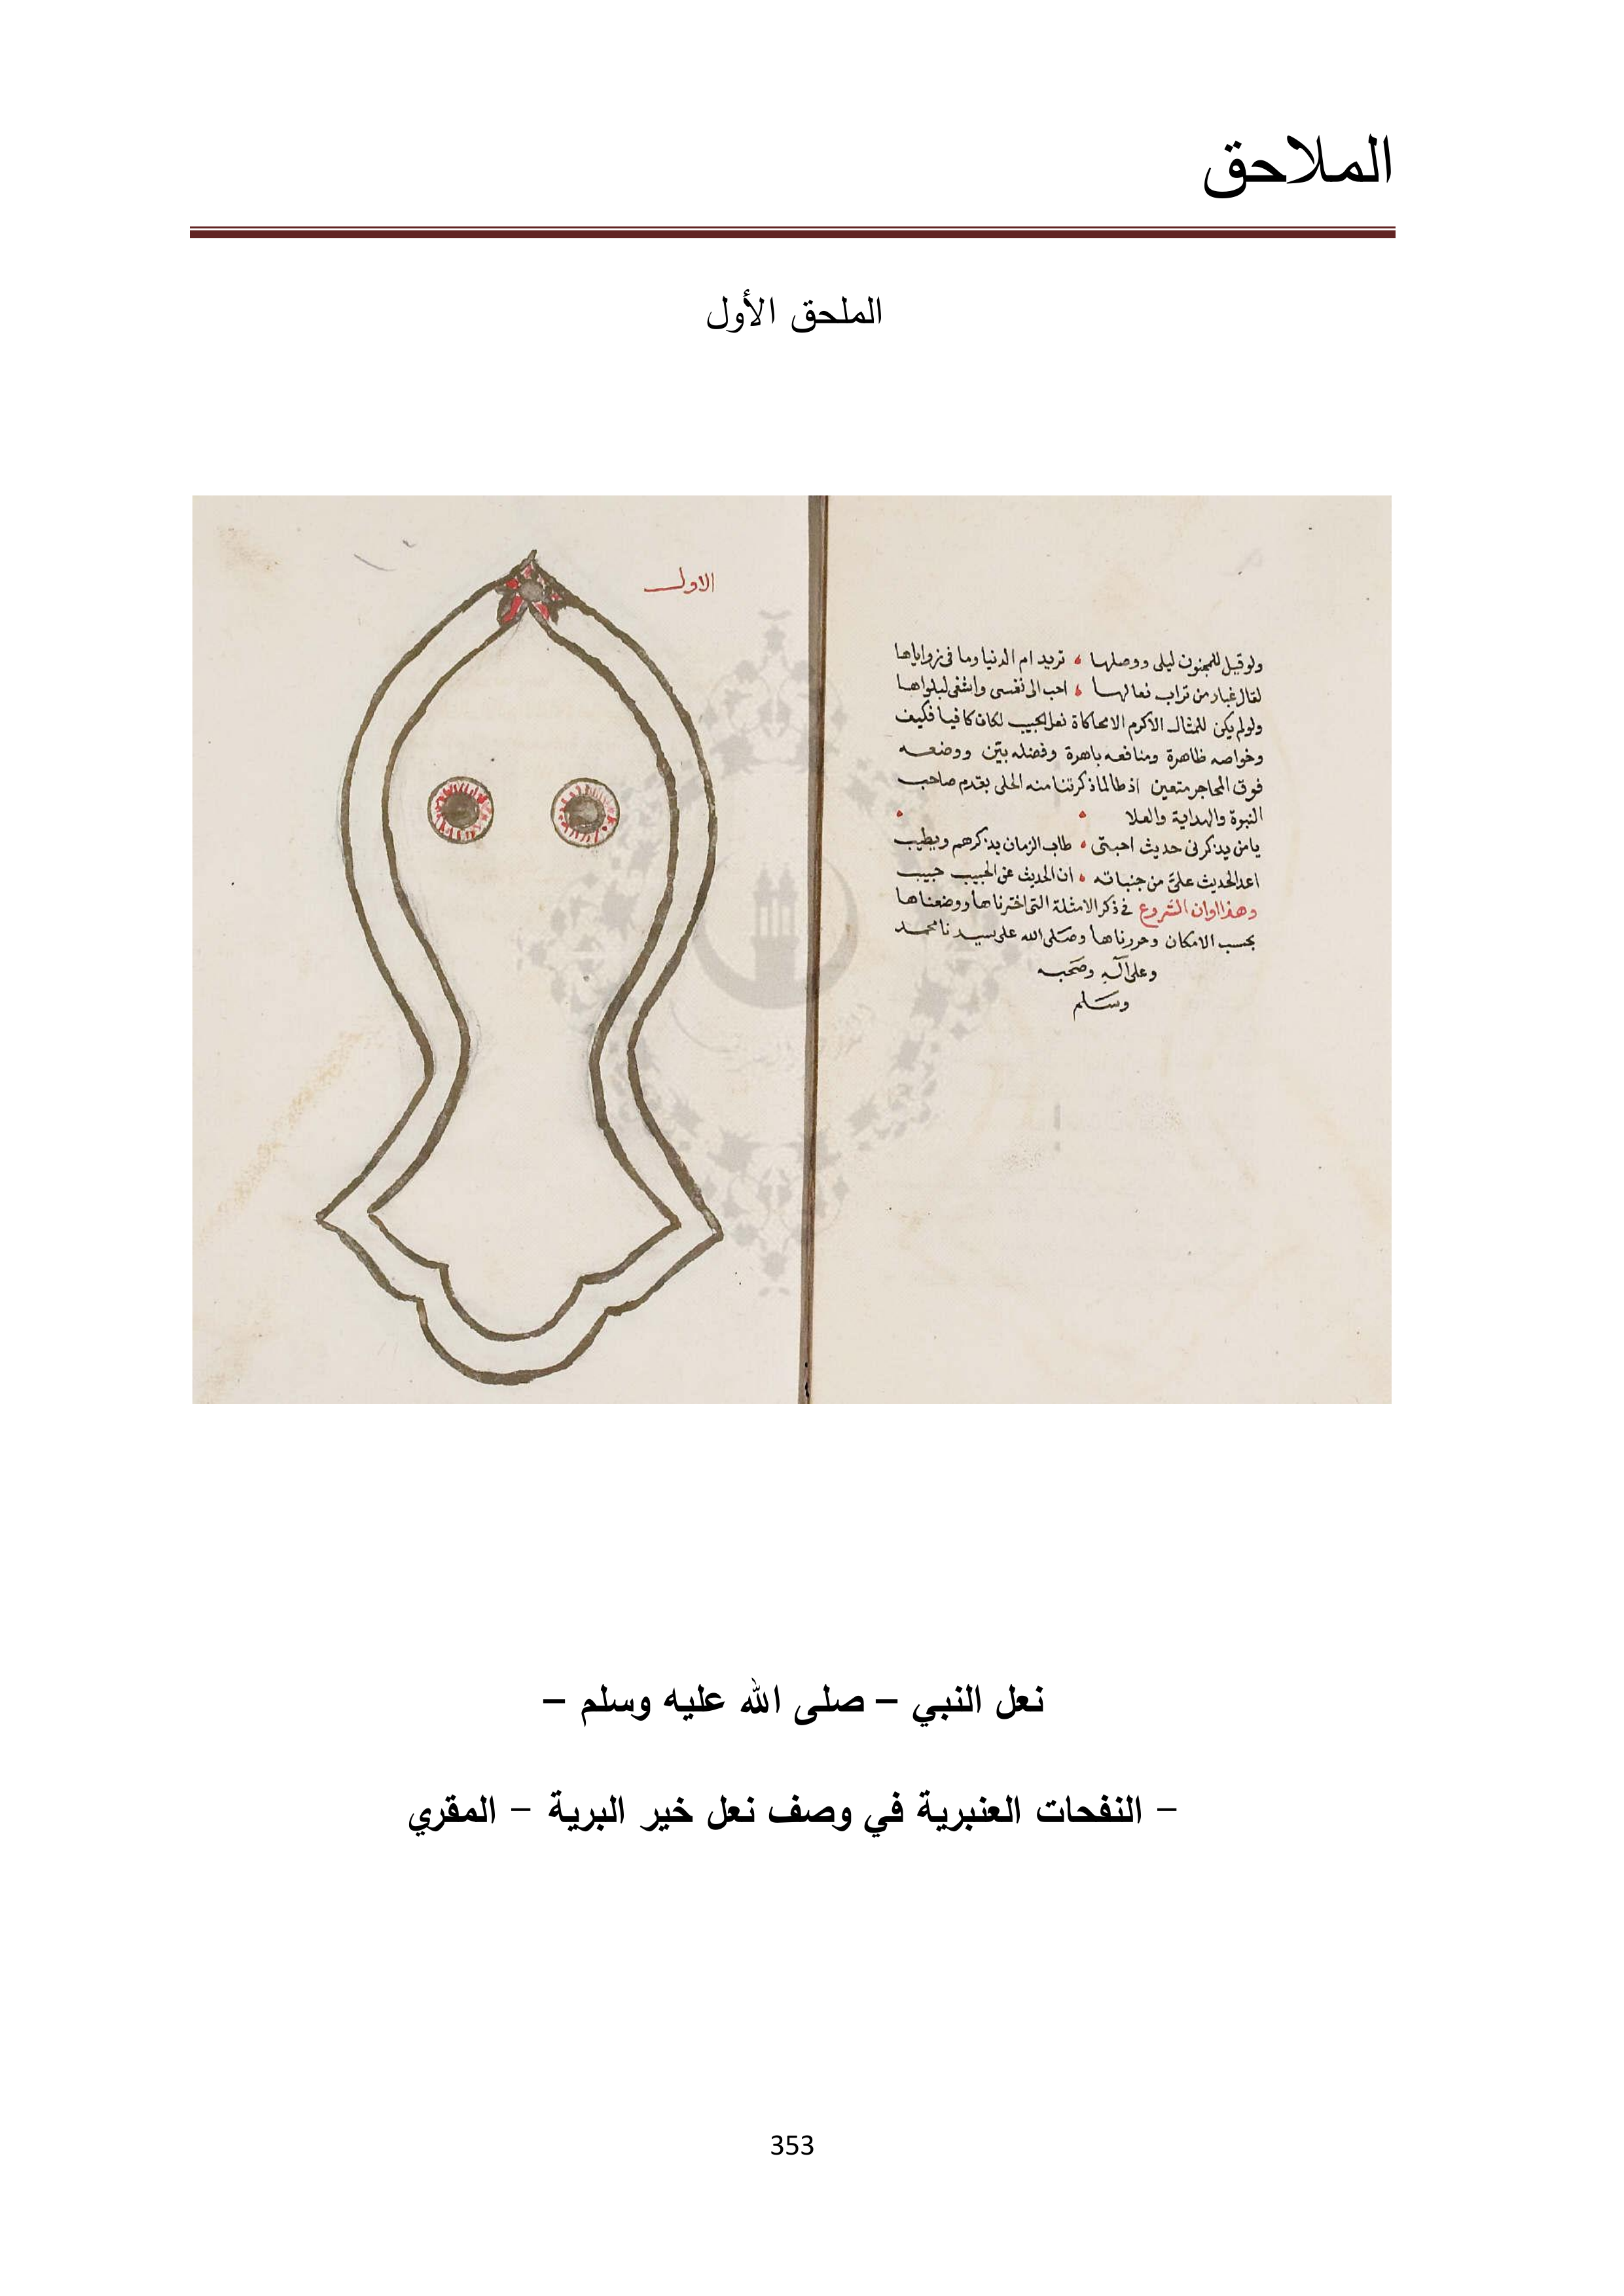 الملاحق
الملحق الأول
ولو قيل للمجنون ليلى ووصلها تريد ام الدنيا وما فى زواياها
لقال غبار من تراب نعالها احب الى نفسى واشفى لبلواها
ولو لم يكن للمثال الاكرم الا محاكاة نعل الحبيب لكان كافيا فكيف
وخواصه ظاهرة ومنافعه باهرة وفضله بيّن ووضعه
فوق المحاجر متعين اذ طالما ذكرتنا منه الحلى بقدم صاحب
النبوة والهداية والعلا
يا من يذكرنى حديث احبتى طاب الزمان بذكرهم ويطيب
اعد الحديث علىّ من جنباته ان الحديث عن الحبيب حبيب
وهذا اوان الشروع فى ذكر الامثلة التى اخترناها ووضعناها
بحسب الامكان وحررناها وصلى الله على سيدنا محمد
وعلى آله وصحبه
وسلم
الاول
نعل النبي – صلى الله عليه وسلم –
– النفحات العنبرية في وصف نعل خير البرية – المقري
353